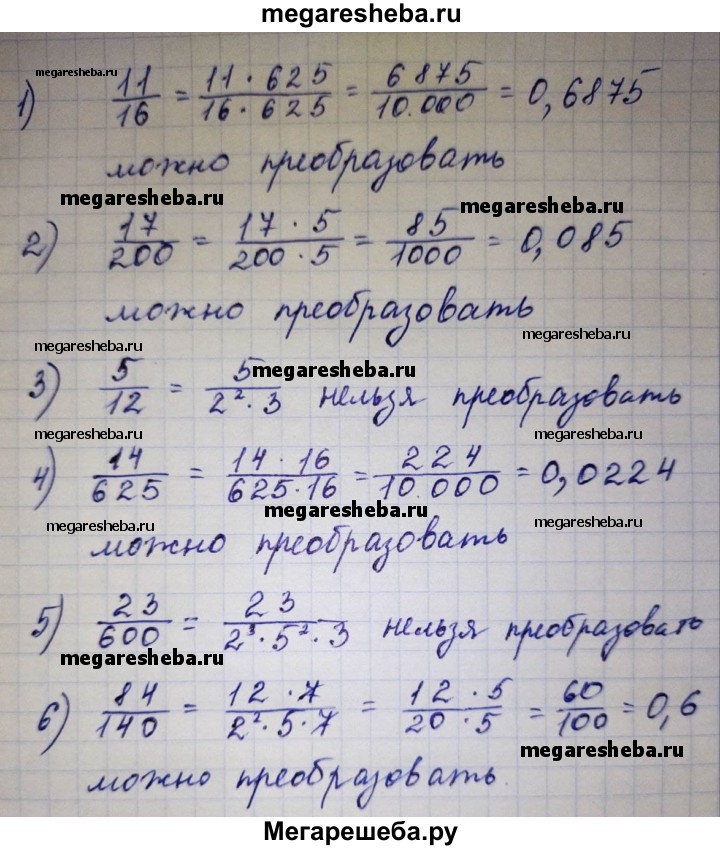 megaresheba.ru
megaresheba.ru
1) 11/16 = 11·625/16·625 = 6875/10.000 = 0,6875
можно преобразовать
megaresheba.ru
megaresheba.ru
2) 17/200 = 17·5/200·5 = 85/1000 = 0,085
можно преобразовать
megaresheba.ru
megaresheba.ru
megaresheba.ru
3) 5/12 = 5/2²·3 нельзя преобразовать
megaresheba.ru
megaresheba.ru
4) 14/625 = 14·16/625·16 = 224/10.000 = 0,0224
megaresheba.ru
megaresheba.ru
megaresheba.ru
можно преобразовать
5) 23/600 = 23/2³·5²·3 нельзя преобразовать
megaresheba.ru
megaresheba.ru
6) 84/140 = 12·7/2²·5·7 = 12·5/20·5 = 60/100 = 0,6
megaresheba.ru
можно преобразовать.
Мегарешеба.ру